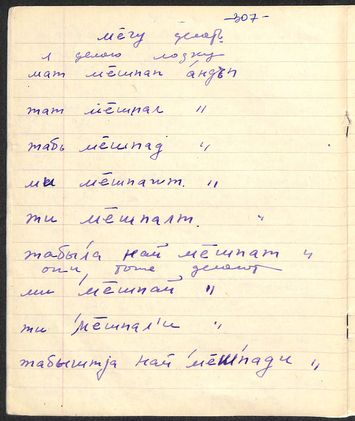 -307-
мēгу делать
я делаю лодку
мат мēшпап áндъп
тат мēшпал "
табь мēшпад "
ми мēшпаит. "
ти мēшпалт. "
табы́ла най мēшпат "
они, тоже делают
ми мēшпай "
ти мēшпал'и "
табыштjа най мēшпади "